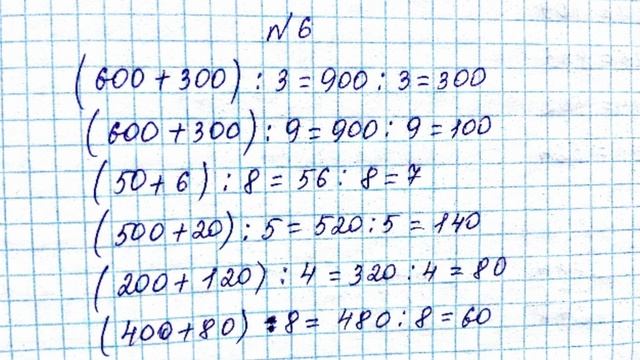 №6
(600 + 300) : 3 = 900 : 3 = 300
(600 + 300) : 9 = 900 : 9 = 100
(50 + 6) : 8 = 56 : 8 = 7
(500 + 20) : 5 = 520 : 5 = 140
(200 + 120) : 4 = 320 : 4 = 80
(400 + 80) : 8 = 480 : 8 = 60